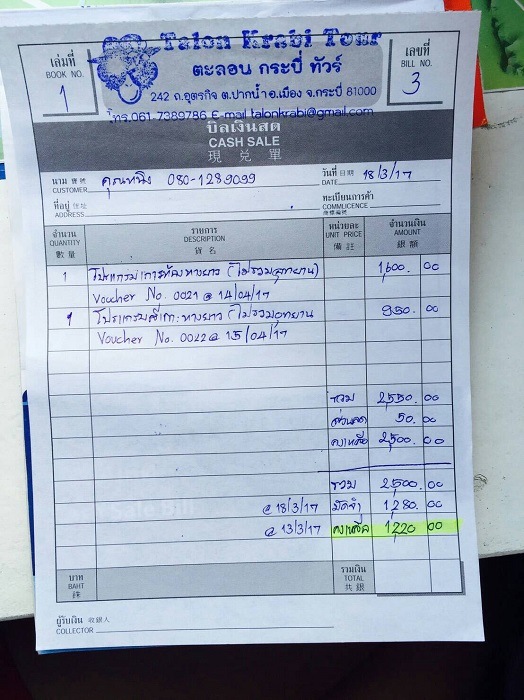 เล่มที่
BOOK NO.
1
Talon Krabi Tour
ตะลอน กระบี่ ทัวร์
242 ถ.อุตรกิจ ต.ปากน้ำ อ.เมือง จ.กระบี่ 81000
โทร.061-7089786 E-mail talonkrabi@gmail.com
เลขที่
BILL NO.
3
บิลเงินสด
CASH SALE
現 兌 單
นาม 寶號
CUSTOMER
คุณหนิง 080-1289099
วันที่ 日期
DATE
18/3/17
ที่อยู่ 住址
ADDRESS
ทะเบียนการค้า
COMMLICENCE
商標編號
จำนวน
QUANTITY
數量
รายการ
DESCRIPTION
貨名
หน่วยละ
UNIT PRICE
備註
จำนวนเงิน
AMOUNT
銀額
1 โปรแกรม (ไม่รวมอุทยาน) 1,600. 00
Voucher No. 0021 @ 14/04/17
1 โปรแกรมสี่เกาะหางยาว (ไม่รวมอุทยาน 950. 00
Voucher No. 0022 @ 15/04/17
รวม 2,550. 00
ส่วนลด 50. 00
คงเหลือ 2,500. 00
รวม 2,500. 00
@ 18/3/17 มัดจำ 1,280. 00
@ 13/3/17 คงเหลือ 1,220 00
บาท
BAHT
銖
รวมเงิน
TOTAL
共銀
ผู้รับเงิน 收銀人
COLLECTOR